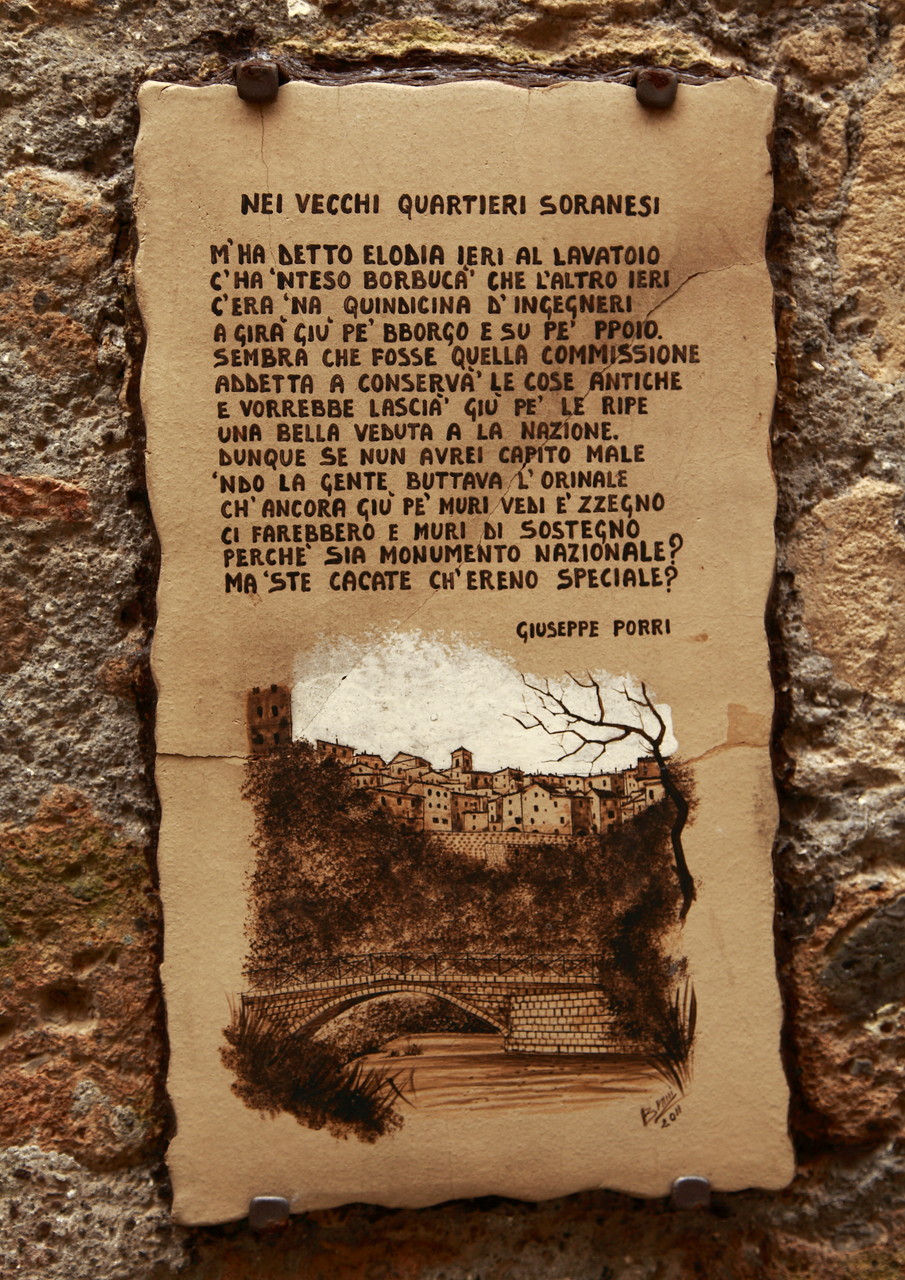 NEI VECCHI QUARTIERI SORANESI
M'HA DETTO ELODIA IERI AL LAVATOIO
C'HA 'NTESO BORBUCA' CHE L'ALTRO IERI
C'ERA 'NA QUINDICINA D'INGEGNERI
A GIRA' GIU' PE' BBORGO E SU PE' PPOIO.
SEMBRA CHE FOSSE QUELLA COMMISSIONE
ADDETTA A CONSERVA' LE COSE ANTICHE
E VORREBBE LASCIA' GIU' PE' LE RIPE
UNA BELLA VEDUTA A LA NAZIONE.
DUNQUE SE NUN AVREI CAPITO MALE
'NDO LA GENTE BUTTAVA L'ORINALE
CH'ANCORA GIU' PE' MURI VEDI E' ZZEGNO
CI FAREBBERO E MURI DI SOSTEGNO
PERCHE' SIA MONUMENTO NAZIONALE?
MA 'STE CACATE CH'ERENO SPECIALE?
GIUSEPPE PORRI
2011